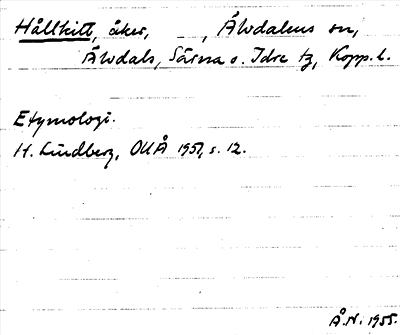 Hållkitt, åker, , Älvdalens sn,
Älvdals, Särna o. Idre tg, Kopp. l.
Etymologi.
H. Lindberg, OUÅ 1951, s. 12.
Å.N. 1955.